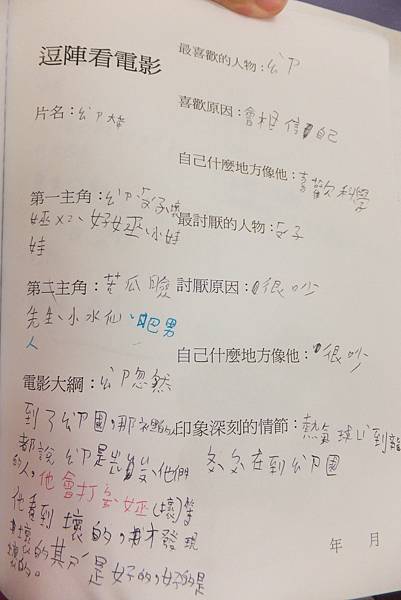 逗陣看電影
片名：ㄠˋㄗ大
第一主角：ㄠˋㄗ
巫X二、好女巫、小娃
娃
第二主角：苦瓜臉
先生、小水仙、吧男
人
電影大綱：ㄠˋㄗ忽然
到了ㄠˋㄗ國，那
都說ㄠˋㄗ是
的人，他會打 女巫(壞)等
他看到壞的，才發現
壞的其ㄕˊ是好的，好的是
壞的。
最喜歡的人物：ㄠˋㄗ
喜歡原因：會相信自己
自己什麼地方像他：喜歡科學
最討厭的人物：女子
討厭原因：很吵
自己什麼地方像他：很吵
印象深刻的情節：熱氣球 到龍
在到ㄠˋㄗ國
年 月